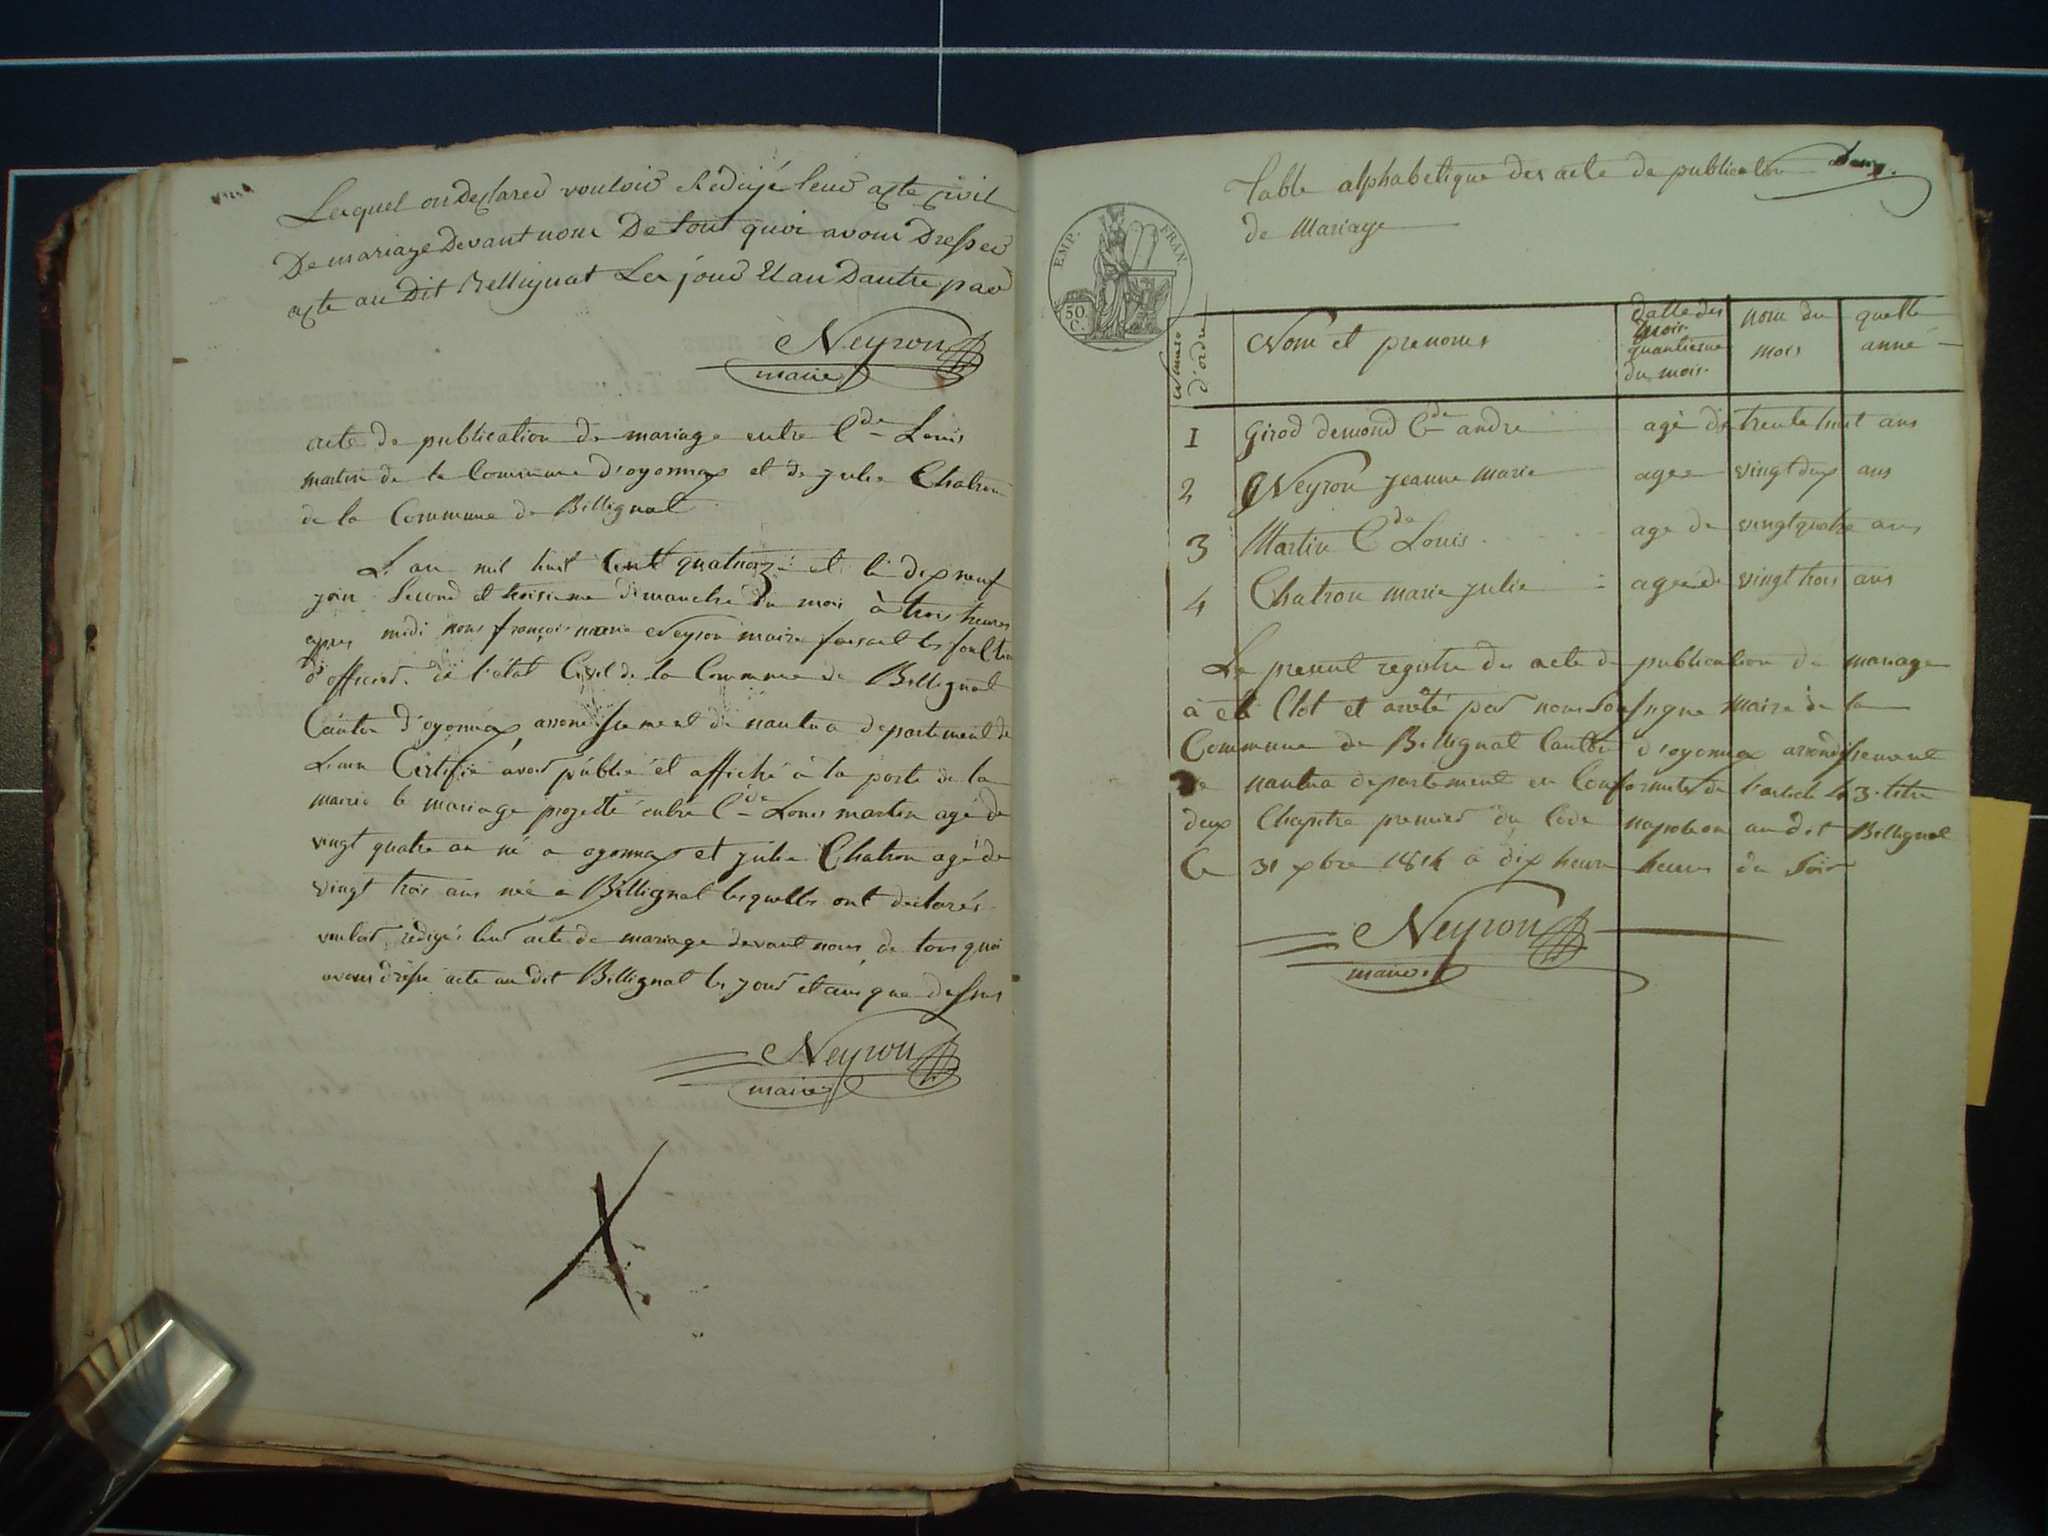 Lesquel on declarer vouloir Redijé leur acte civil
De mariage Devant nous De tout quoi avons Dresser
acte au Dit Bellignat Les jour Et an Dautre par
Neyron
maire
acte de publication de mariage entre Cde Louis
martin de la Commune d'oyonnax et de julie Chatron
de la Commune de Bellignat
L'an mil huit Cent quatorze et le dix neuf
juin Second et troisieme dimanche du mois à trois heures
apres midi nous françois marie Neyron maire faisant les
d'officier de l'état Civil de la Commune de Bellignat
Canton d'oyonnax, arronissement de nantua departement de
Lain Certifie avoir publié et affiché à la porte de la
mairie le mariage projetté entre Cde Louis martin agé de
vingt quatre an né a oyonnax et julie Chatron agé de
vingt trois ans née a Bellignat lesquelles ont declarés
vouloir rédigés leur acte de mariage devant nous de tous quoi
avons dresse acte au dit Bellignat les jour et ans que dessus
Neyron
maire
X
Table alphabetique des acte de publication
de Mariage
EMP. FRAN.
50 C.
Numero d'ordre
Nom et prenoms
datte des mois quantieme du mois
nom du mois
quelle anné
1 Girod demond Cde andre agé de trente huit ans
2 Neyron jeanne marie agee vingt deux ans
3 Martin Cde Louis age de vingt quatre ans
4 Chatron marie julie agee de vingt trois ans
Le present registre des acte de publication de mariage
à eté Clot et arrêté par nous Soussigne maire de la
Commune de Bellignat Canton d'oyonnax arrondissement
de nantua departement en Conformité de l'article 43 titre
deux Chapitre premier du Code napoleon au dit Bellignat
Ce 31 xbre 1814 à dix heure heures du Soir
Neyron
maire